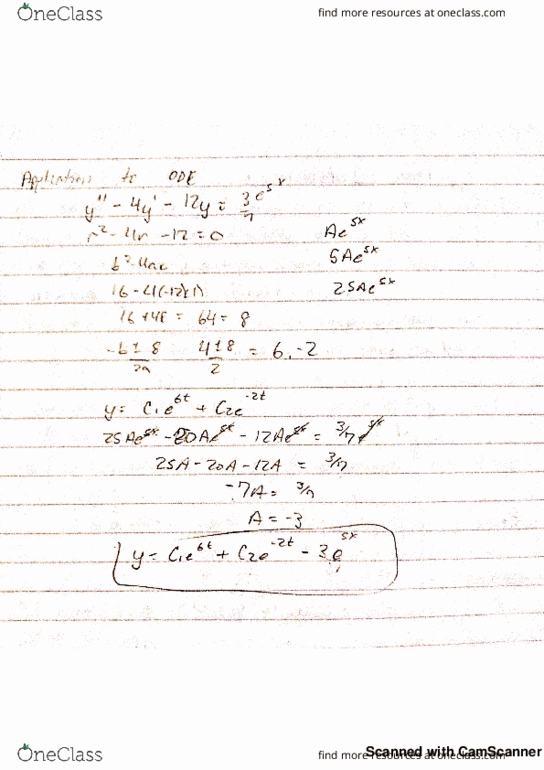 OneClass
find more resources at oneclass.com
Applications to ODE
y'' - 4y' - 12y = 3/7 e^5x
r² - 4r - 12 = 0
Ae^5x
b² - 4ac
5Ae^5x
16 - 4(-12)(1)
25Ae^5x
16 + 48 = 64 = 8
-b ± 8 / 2a   4 ± 8 / 2 = 6, -2
y = C₁e^6t + C₂e^-2t
25Ae^5x - 20Ae^5x - 12Ae^5x = 3/7 e^5x
25A - 20A - 12A = 3/7
-7A = 3/7
A = -3
y = C₁e^6t + C₂e^-2t - 3e^5x
Scanned with CamScanner
OneClass
find more resources at oneclass.com